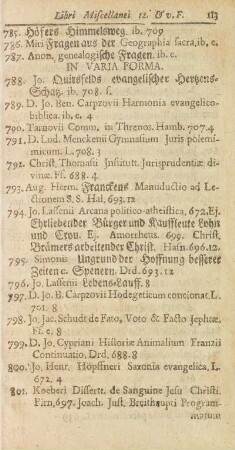 Libri Miscellanei 12. & v. F. 113
785. Höfers Himmelsweg. ib. 709
786. Miri Fragen aus der Geographia sacra, ib. c.
787. Anon. genealogische Fragen. ib. c.
IN VARIA FORMA.
788. Jo. Quirsfelds evangelischer Hertzens-
Schatz. ib. 708. f.
789. D. Jo. Ben. Carpzovii Harmonia evangelico-
biblica. ib. c. 4
790. Tarnovii Comm. in Threnos. Hamb. 707. 4
791. D. Lud. Menckenii Gymnasium Juris polem-
micum. L. 708. 3
792. Christ. Thomasii Institutt. Jurisprudentiæ di-
vinæ. Ff. 688. 4
793. Aug. Herm. Franckens Manuductio ad Le-
ctionem S. S. Hal. 693. 12
794. Jo. Lassenii Arcana politico-atheistica, 672. Ej.
Ehrliebender Bürger und Kauffleute Lohn
und Cron. Ej. Amorrheus. 696. Christ.
Brämers arbeitender Christ. Hafn. 696. 12.
795. Simonis Ungrund der Hoffnung besserer
Zeiten c. Spenern. Drd. 693. 12
796. Jo. Lassenii Lebens-Lauff. 8
797. D. Jo. B. Carpzovii Hodegeticum concionat. L.
701. 8
798. Jo. Jac. Schudt de Fato, Voto & Facto Jephtæ.
Ff. c. 8
799. D. Jo. Cypriani Historiæ Animalium Franzii
Continuatio, Drd, 688. 8
800. Jo, Henr. Höpffneri Saxonia evangelica, L.
672. 4
801. Koeberi Dissertt. de Sanguine Jesu Christi.
Firn, 697. Joach. Just. Breithaupti Program-
matum